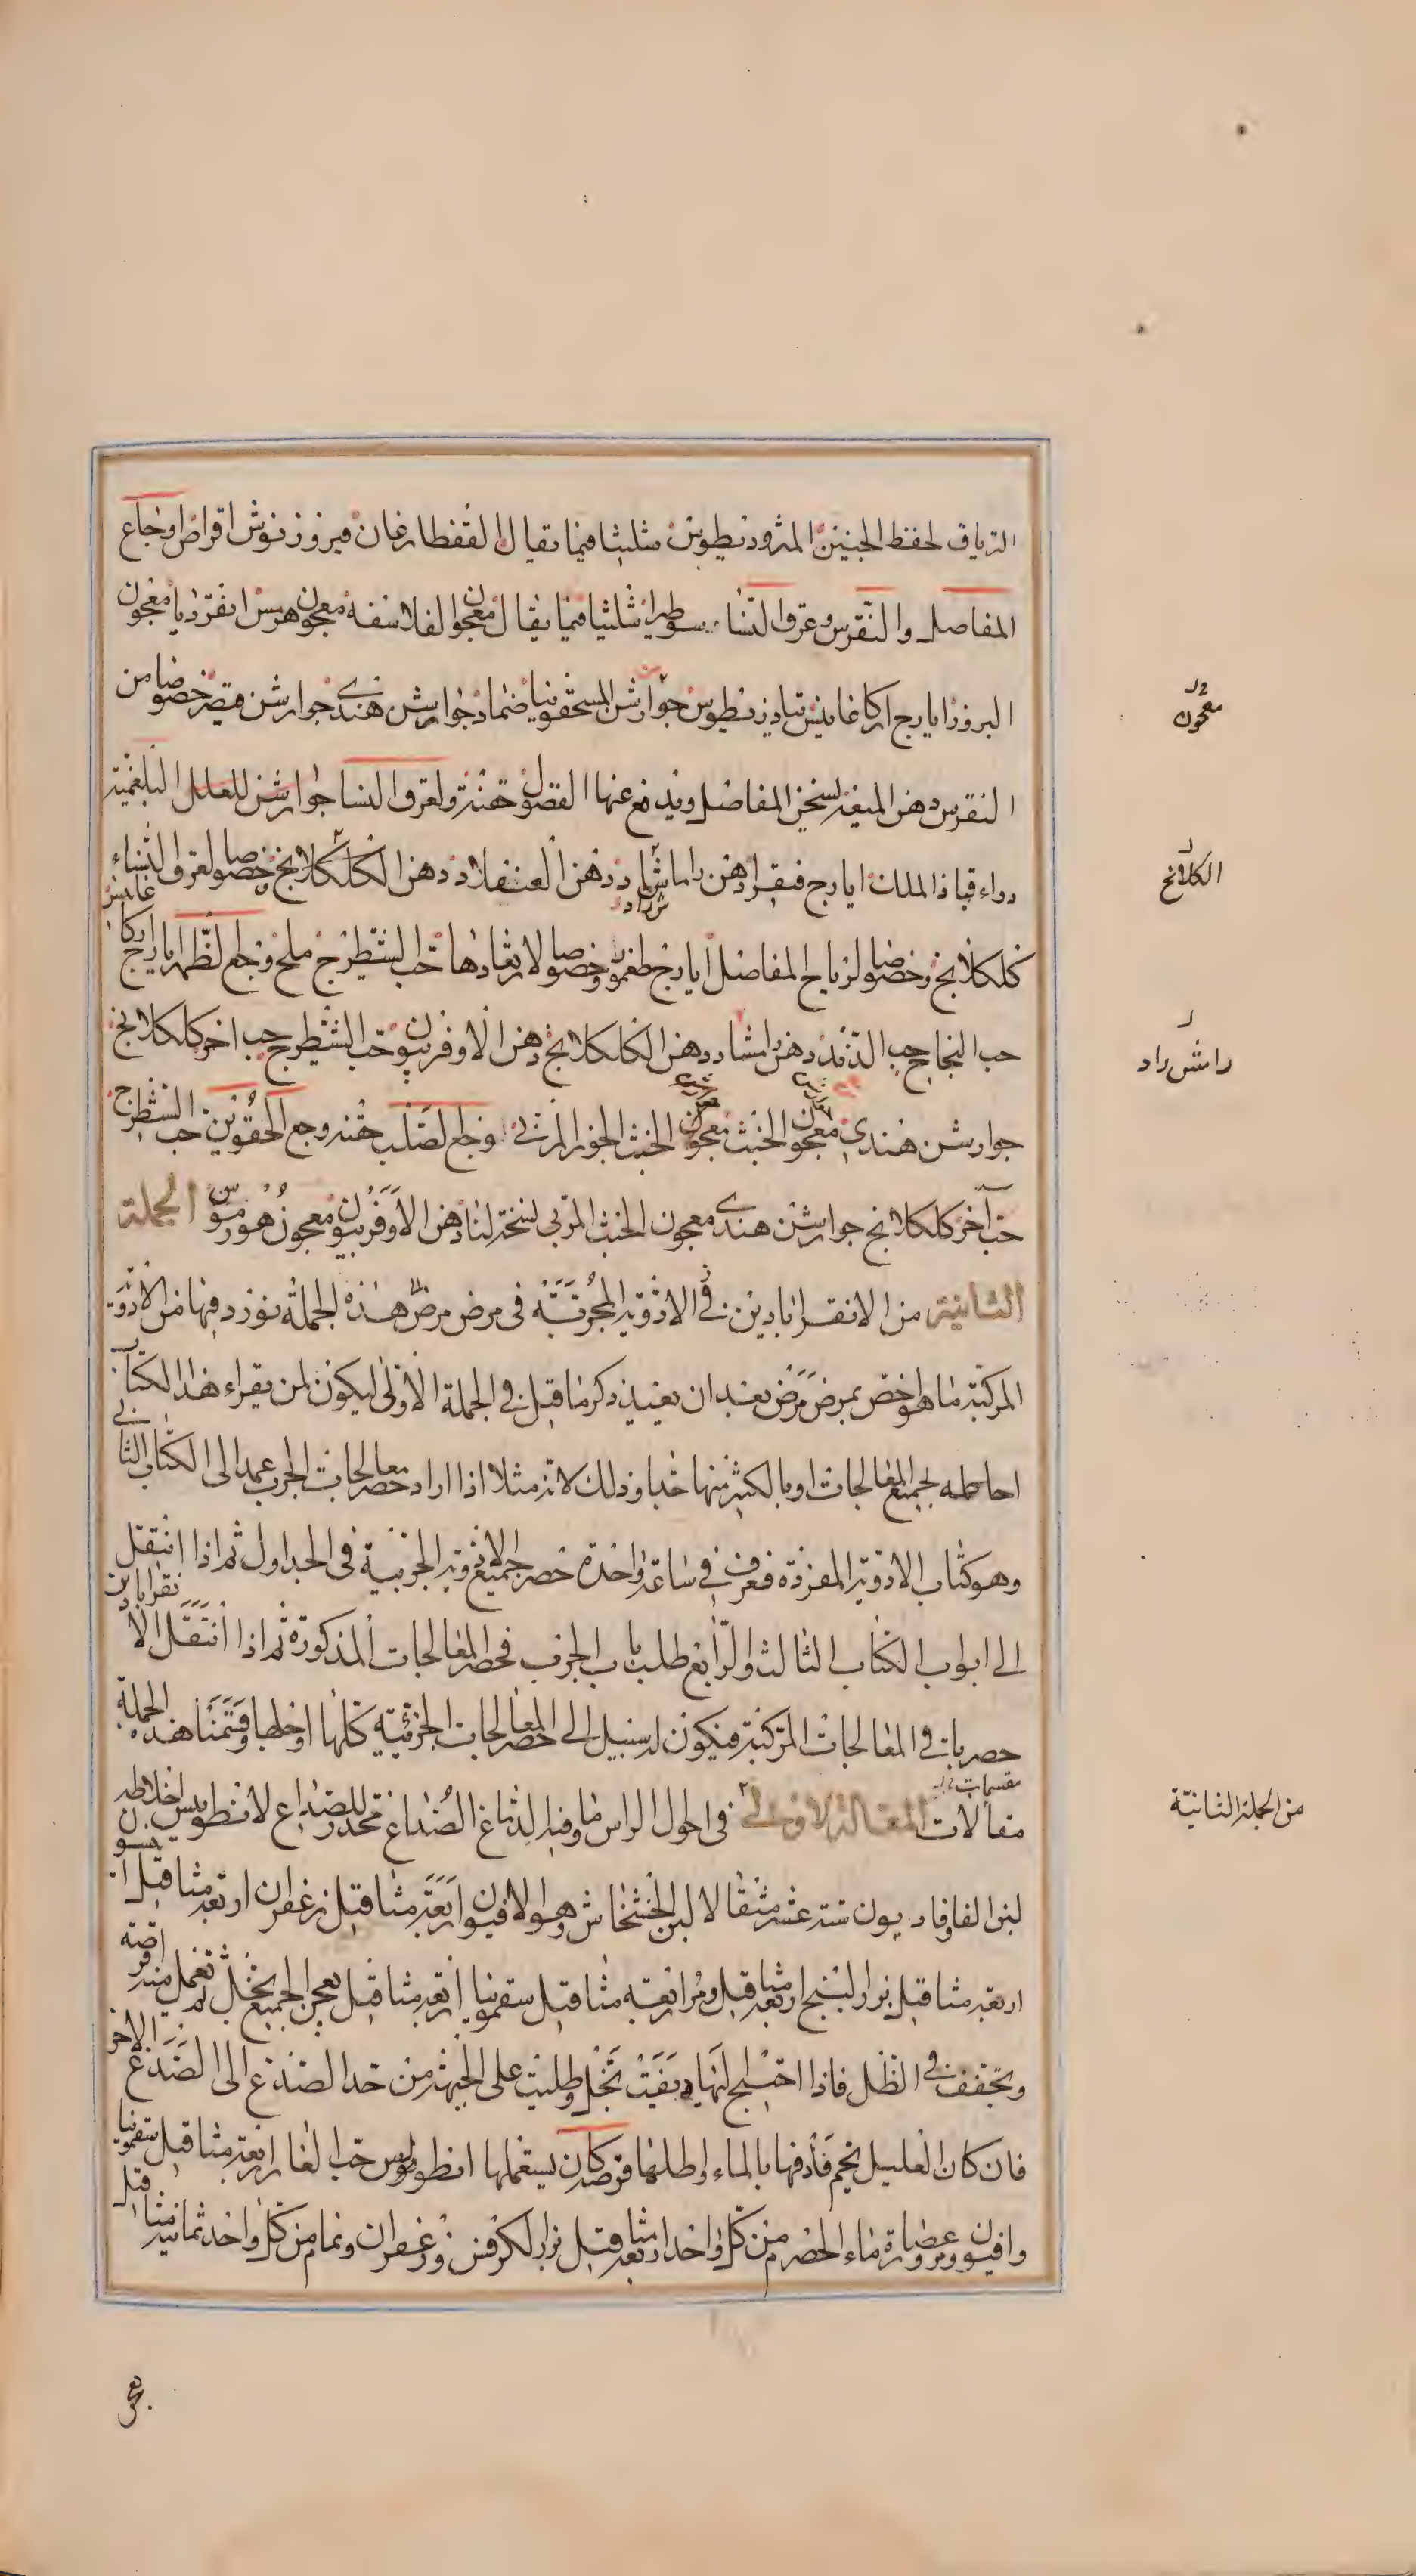 الترياق لحفظ الجنين المثرودنطوس مثلیثا فيما يقال القفطارغان فيروزنوش اقراص اوجاع
المفاصل والنقرس وعرق النسا سوطيرا مثليثا فيما يقال معجون الفلاسفه معجون هرمس انقرديا معجون
البزور ايارج اركاغانيس تياذريطوس جوارشن المسحقونيا ضماد جوارشن هندي جوارشن قيصر خصوصا من
معجون
النقرس دهن الميعه لسخن المفاصل ويدفع عنها الفضول حقنة ولعرق النسا جوارشن للعلل البلغمية
دواء قباذ الملك ايارج فيقرا دهن راماشاد دهن العنفلاد دهن الكلكلانج خصوصا لعرق النساء
الكلانج
كلكلانج وخصوصا لرياح المفاصل ايارج طغموا وخصوصا لارتعادها حب الشيطرج ملح وجع الظهر ايارج اركاغانيس
حب النجاح حب الدند دهن رامشاد دهن الكلكلانج دهن الاوفربيون حب الشيطرج حب اخر كلكلانج
رامش راد
جوارشن هندي معجون الخبث معجون الخبث الجوارشني اوجاع الصلب حقنه وجع الحقوين حب الشيطرج
حب آخر كلكلانج جوارشن هندي معجون الخبث المربى لسخة لنا دهن الاوفربيون معجون هورموس الجملة
الثانية من الانقراباذين في الادوية المجربة في مرض مرض هذه الجملة نورد فيها من الادوية
المركبة ما هو اخص بمرض مرض بعد ان نعيد ذكر ما قيل في الجملة الاولى ليكون لمن يقراء هذا الكتاب
احاطه بجميع المعالجات او بالكثير منها جدا وذلك لانه مثلا اذا اراد حصر معالجات الجرب عمد الى الكتاب الثاني
وهو كتاب الادوية المفردة فعرف في ساعة واحدة حصر جميع الادوية الجزئية في الجداول ثم اذا انتقل
الى ابواب الكتاب الثالث والرابع طلب باب الجرب فحصر المعالجات المذكورة ثم اذا انتقل الا نقراباذين
حصر باب في المعالجات المركبة فيكون له سبيل الى حصر المعالجات الجزئية كلها او جلها وقسمنا هذه الجملة
مقسمات
مقالات المقالة الاولى في احوال الراس وما فيه الدماغ الصداغ مخدر للصداع لانطويس اخلاطه
من الجملة الثانية
لبنى الفاوفاديون ستة عشر مثقالا لبن الخشخاش وهو الافيون اربعة مثاقيل زعفران اربعة مثاقيل
اربعة مثاقيل بزر البنج اربعة مثاقيل ومر اربعة مثاقيل سقمونيا اربعة مثاقيل يعجن الجميع بخل ثم تعمل منه اقرصة
وتجفف في الظل فاذا احتيج اليها ديفت بخل وطليت على الجبهة من حد الصدغ الى الصدغ الاخر
فان كان العليل يحم فأدفها بالماء واطلها قرصة كان يستعملها انطولوس حب الغار اربعة مثاقيل سقمونيا
وافيون ومر وعصارة ماء الحصرم من كل واحد اربعة مثاقيل بزر الكرفس وزعفران ونمام من كل واحد ثمانية مثاقيل